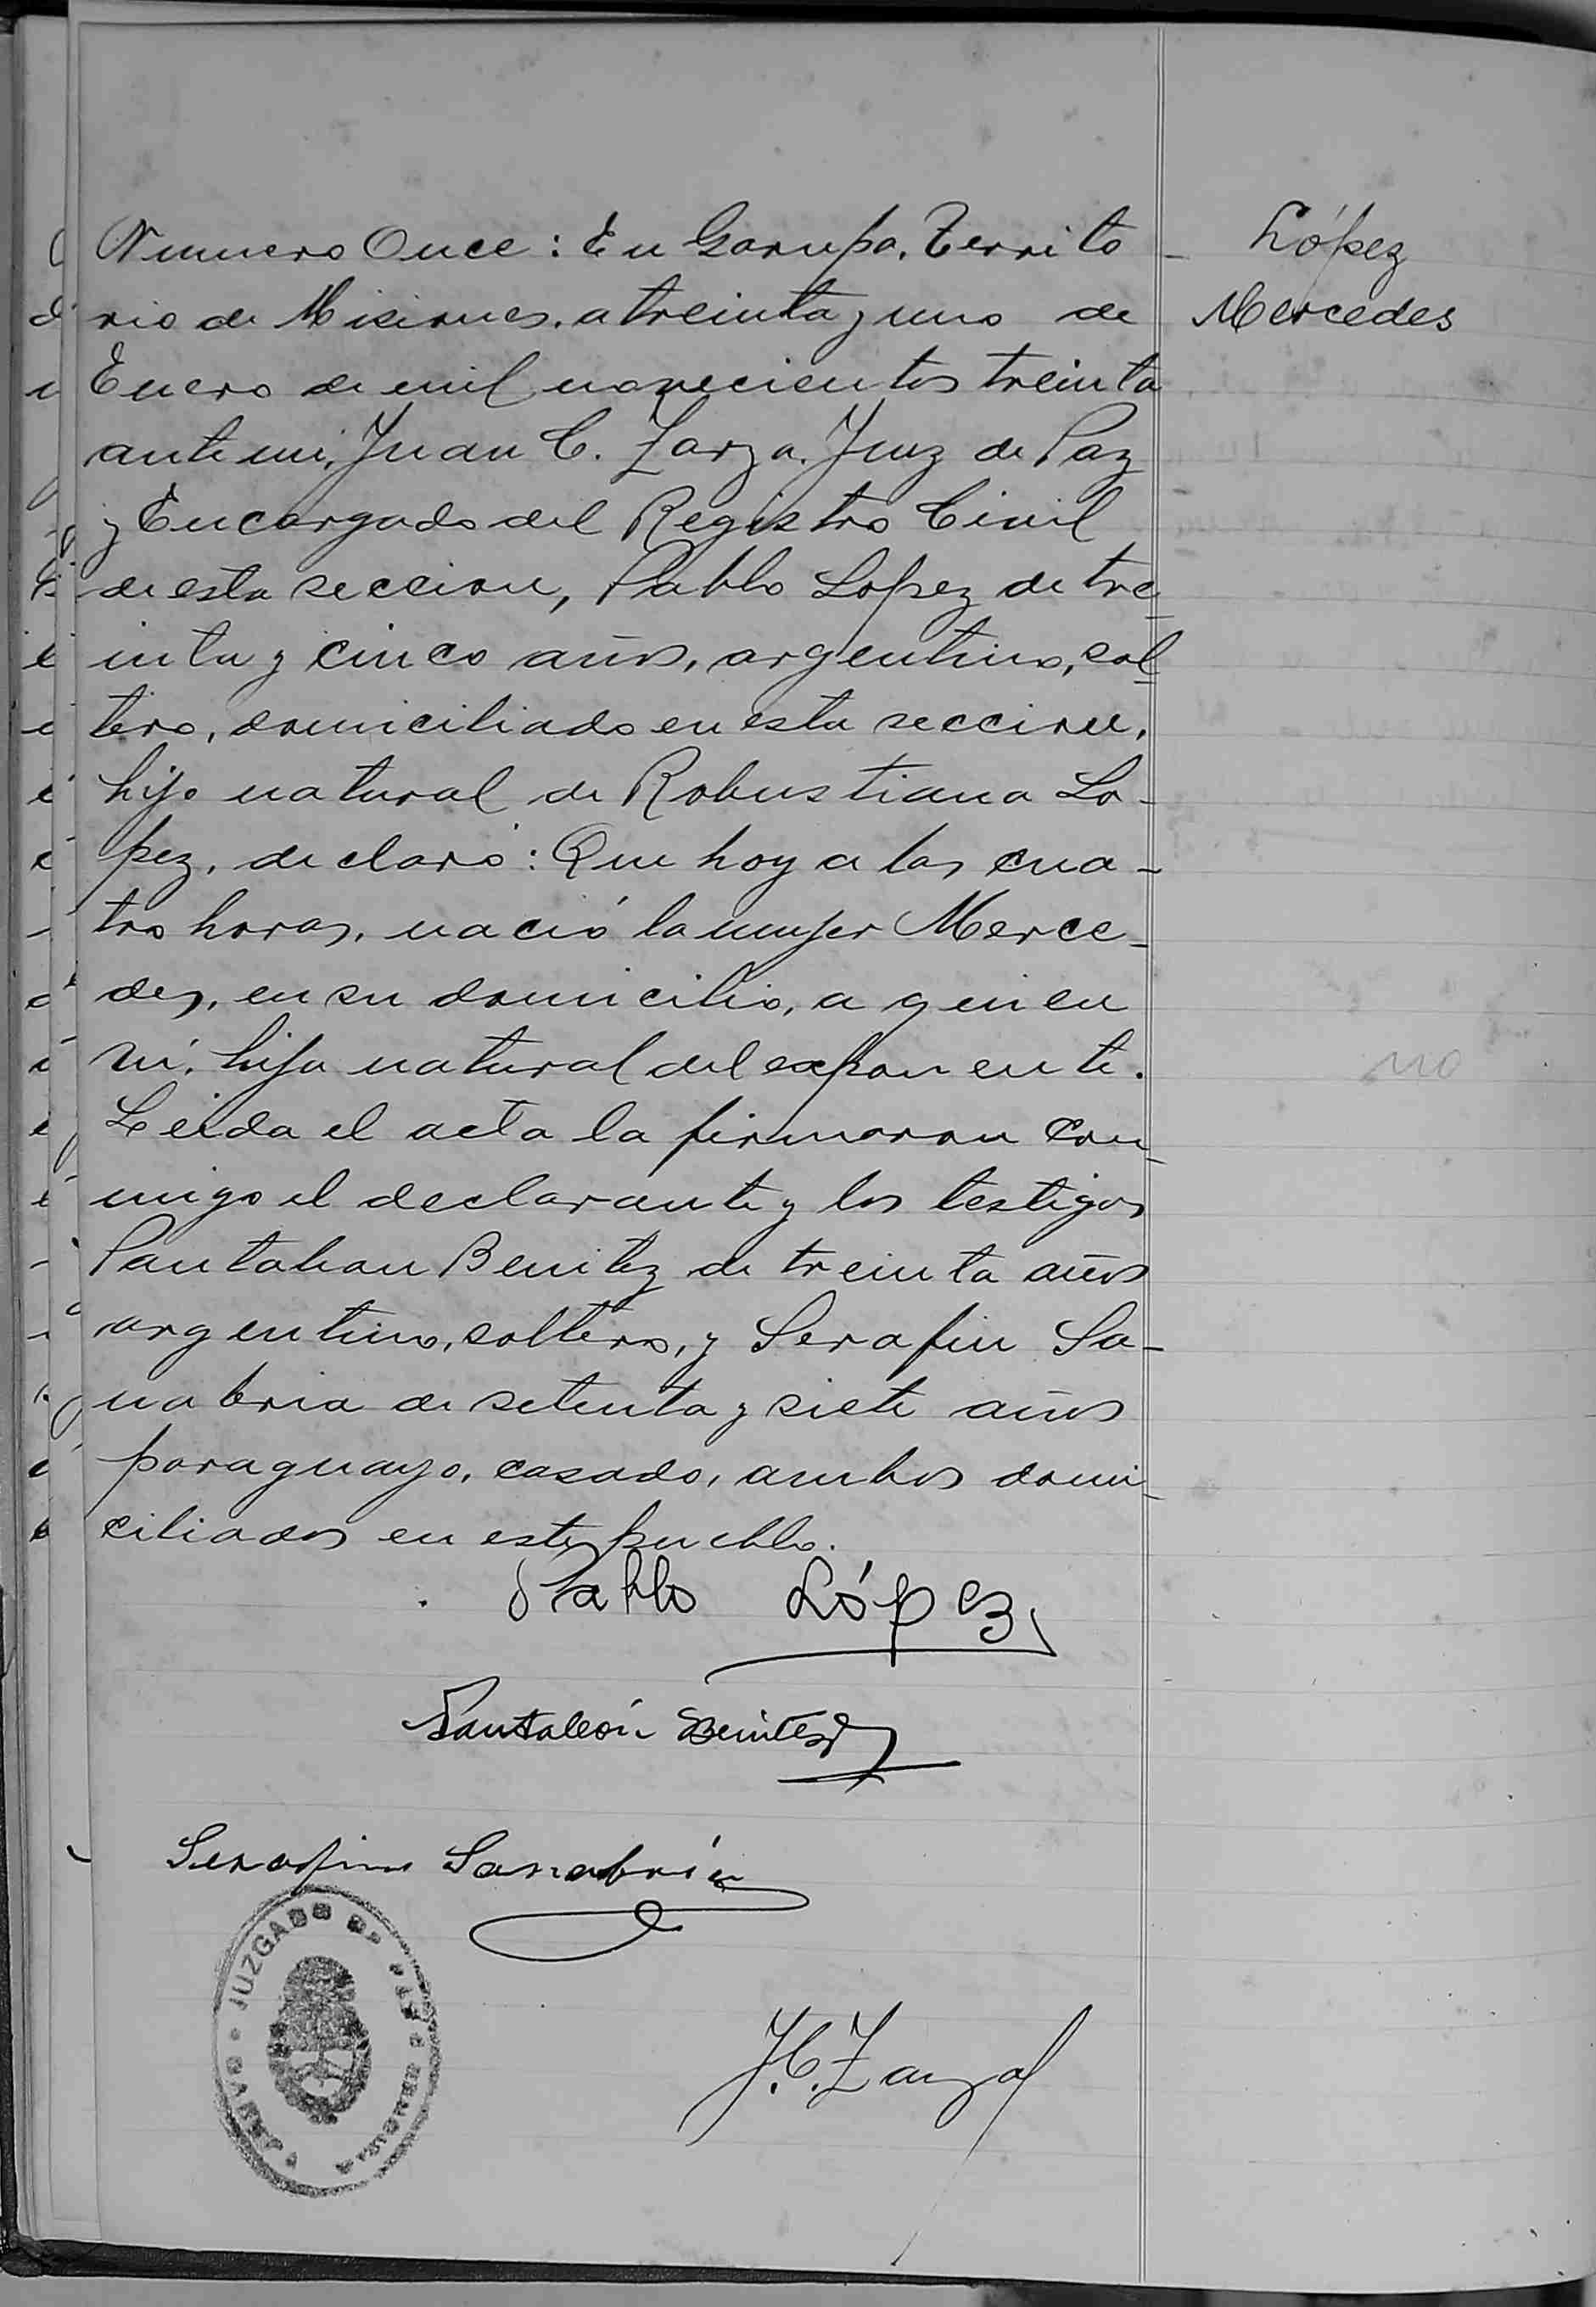 López
Mercedes
Numero Once: En Garupa, Territo
rio de Misiones, a treinta y uno de
Enero de mil novecientos treinta
ante mi, Juan C. Zarza, Juez de Paz
y Encargado del Registro Civil
de esta seccion, Pablo Lopez de tre-
inta y cinco años, argentino, sol-
tero, domiciliado en esta seccion,
hijo natural de Robustiana Lo-
pez, declaró: Que hoy a las cua-
tro horas, nació la mujer Merce-
des, en su domicilio, a quien
ví, hija natural del exponente.
Leida el acta la firmaron con-
migo el declarante y los testigos
Pantaleon Benitez de treinta años
argentino, soltero, y Serafin Sa-
nabria de setenta y siete años
paraguayo, casado, ambos domi-
ciliados en este pueblo.
Pablo López
Pantaleón Benitez
Serafin Sanabria
JUZGADO DE PAZ
J.C. Zarza
no